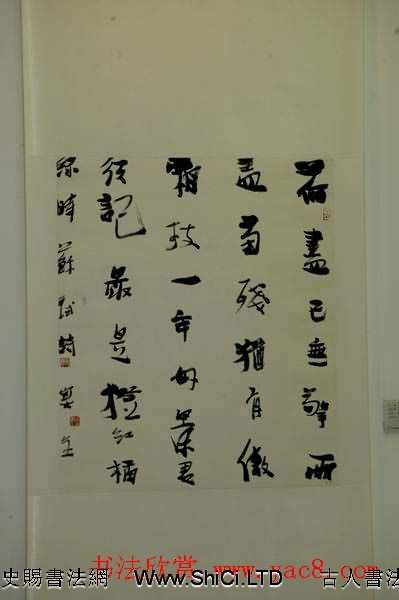 荷盡已無擎雨
蓋菊殘猶有傲
霜枝一年好景君
須記最是橙紅橘
綠時蘇軾詩
书法欣赏 www.yac8.com
史賜書法網 www.ShiCi.LTD 古人書法